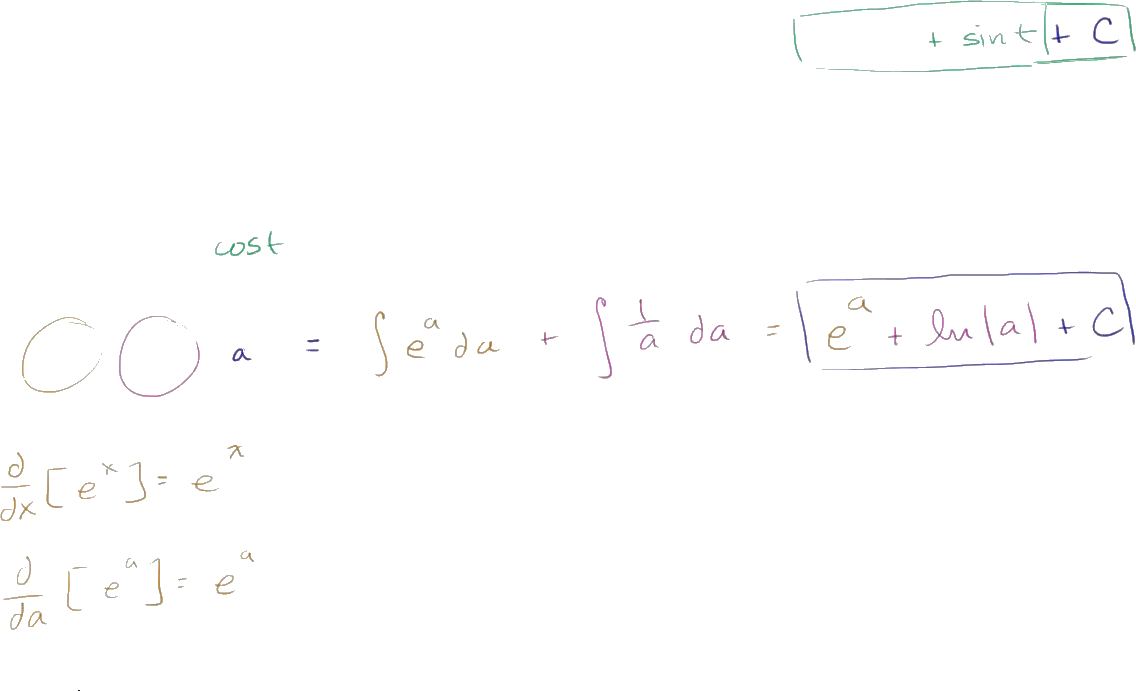 + sin t + C
cos t
a = ∫ e^a da + ∫ 1/a da = e^a + ln|a| + C
d/dx [e^x] = e^x
d/da [e^a] = e^a